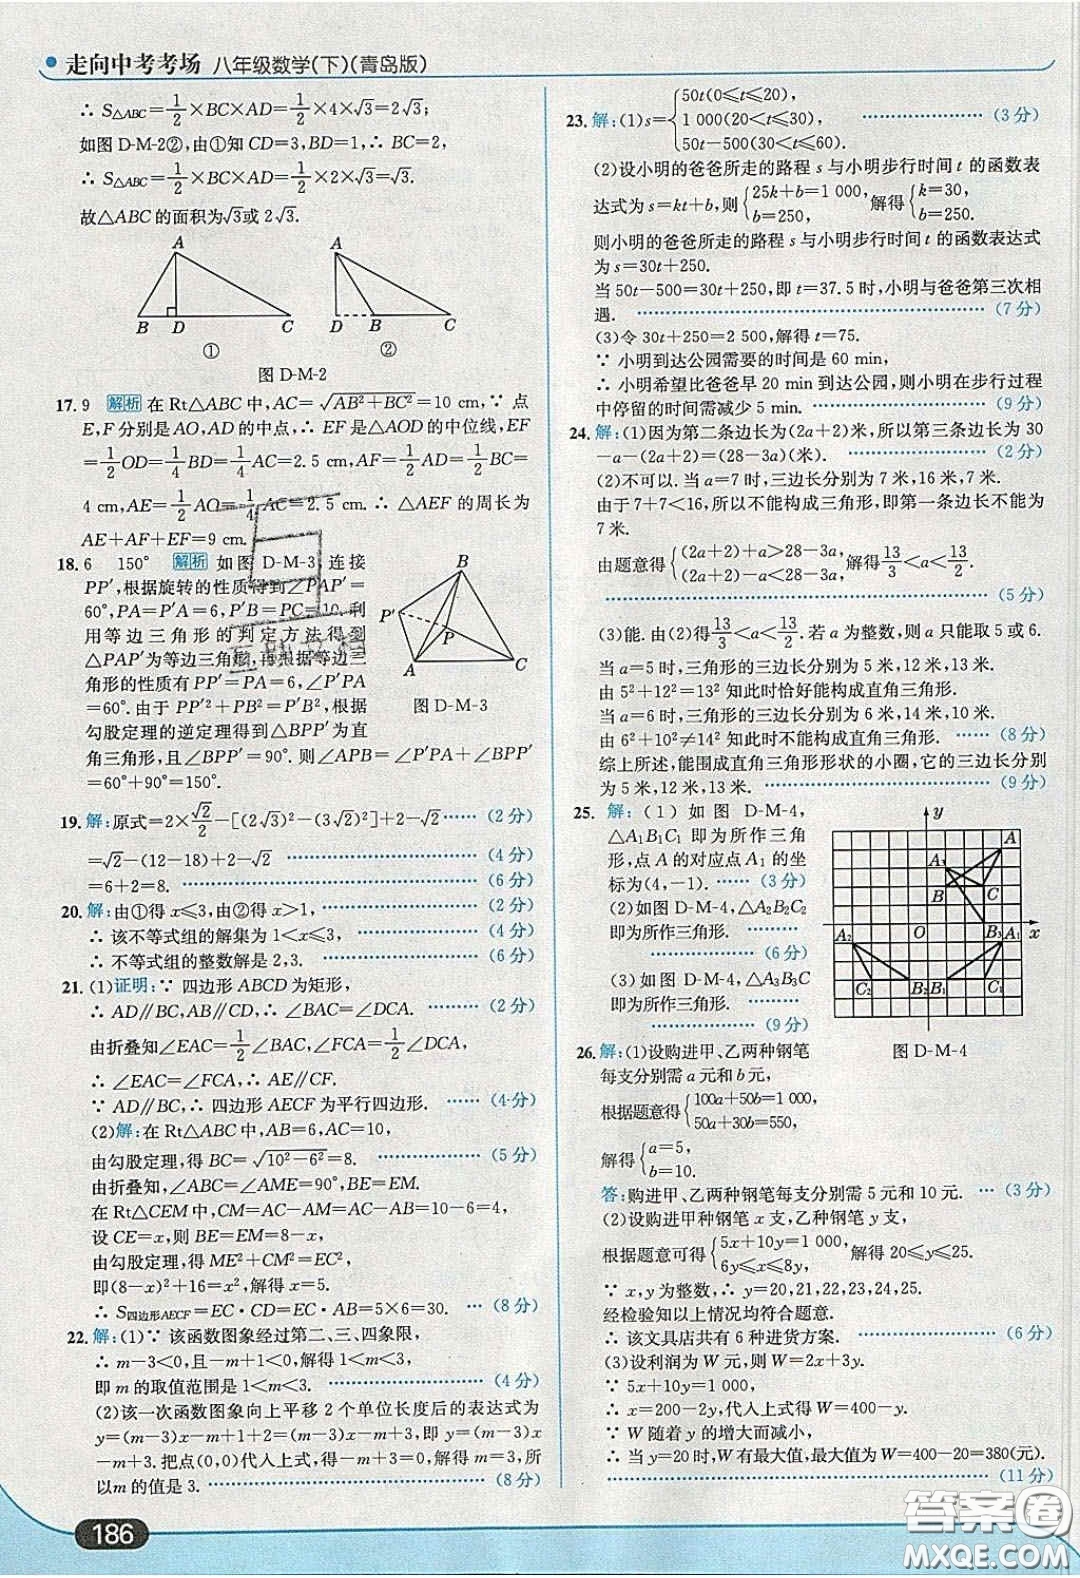 走向中考考场 八年级数学(下)(青岛版)
∴ S△ABC=1/2×BC×AD=1/2×4×√3=2√3;
如图 D-M-2②,由①知 CD=3,BD=1,∴ BC=2,
∴ S△ABC=1/2×BC×AD=1/2×2×√3=√3.
故△ABC 的面积为√3或 2√3.
A
B D C
①
A
D B C
②
图 D-M-2
17. 9 解析 在 Rt△ABC 中,AC=√(AB²+BC²)=10 cm,∵ 点
E,F 分别是 AO,AD 的中点,∴ EF 是△AOD 的中位线,EF
=1/2OD=1/4BD=1/4AC=2.5 cm,AF=1/2AD=1/2BC=
4 cm,AE=1/2AO=1/4AC=2.5 cm.∴ △AEF 的周长为
AE+AF+EF=9 cm.
18. 6 150° 解析 如图 D-M-3,连接
PP′,根据旋转的性质得到∠PAP′=
60°,PA=P′A=6,P′B=PC=10,利
用等边三角形的判定方法得到
△PAP′为等边三角形,再根据等边三
角形的性质有 PP′=PA=6,∠P′PA
=60°.由于 PP′²+PB²=P′B²,根据
勾股定理的逆定理得到△BPP′为直
角三角形,且∠BPP′=90°.则∠APB=∠P′PA+∠BPP′=
60°+90°=150°.
B
P′
P
A C
图 D-M-3
19. 解:原式=2×√2/2-[(2√3)²-(3√2)²]+2-√2 …… (2 分)
=√2-(12-18)+2-√2 …… (4 分)
=6+2=8. …… (6 分)
20. 解:由①得 x≤3,由②得 x>1, …… (2 分)
∴ 该不等式组的解集为 1<x≤3, …… (4 分)
∴ 不等式组的整数解是 2,3. …… (6 分)
21. (1)证明:∵ 四边形 ABCD 为矩形,
∴ AD∥BC,AB∥CD,∴ ∠BAC=∠DCA. …… (2 分)
由折叠知∠EAC=1/2∠BAC,∠FCA=1/2∠DCA,
∴ ∠EAC=∠FCA,∴ AE∥CF.
∵ AD∥BC,∴ 四边形 AECF 为平行四边形. …… (4 分)
(2)解:在 Rt△ABC 中,AB=6,AC=10,
由勾股定理,得 BC=√(10²-6²)=8. …… (5 分)
由折叠知,∠ABC=∠AME=90°,BE=EM.
在 Rt△CEM 中,CM=AC-AM=AC-AB=10-6=4,
设 CE=x,则 BE=EM=8-x,
由勾股定理,得 ME²+CM²=EC²,
即(8-x)²+16=x²,解得 x=5.
∴ S四边形AECF=EC·CD=EC·AB=5×6=30. … (8 分)
22. 解:(1)∵ 该函数图象经过第二、三、四象限,
∴ m-3<0,且-m+1<0,解得 1<m<3,
即 m 的取值范围是 1<m<3. …… (4 分)
(2)该一次函数图象向上平移 2 个单位长度后的表达式为
y=(m-3)x-m+1+2=(m-3)x-m+3,即 y=(m-3)x
-m+3.把点(2 020,0)代入上式,得-m+3=0,解得 m=3,所
以m的值是 3. …… (8 分)
23. 解:(1)s={50t(0≤t≤20),
1 000(20<t≤30), …… (3 分)
50t-500(30<t≤60).
(2)设小明的爸爸所走的路程 s 与小明步行时间 t 的函数表
达式为 s=kt+b,则{25k+b=1 000, b=250, 解得{k=30, b=250.
则小明的爸爸所走的路程 s 与小明步行时间 t 的函数表达式
为 s=30t+250.
当 50t-500=30t+250,即 t=37.5 时,小明与爸爸第三次相
遇. …… (7 分)
(3)令 30t+250=2 500,解得 t=75.
∵ 小明到达公园需要的时间是 60 min,
∴ 小明希望比爸爸早 20 min到达公园,则小明在步行过程
中停留的时间需减少 5 min. …… (9 分)
24. 解:(1)因为第二条边长为(2a+2)米,所以第三条边长为 30
-a-(2a+2)=(28-3a)(米). …… (2 分)
(2)不可以.当 a=7 时,三边长分别为 7 米,16 米,7 米.
由于 7+7<16,所以不能构成三角形,即第一条边长不能为
7 米.
由题意得{(2a+2)+a>28-3a, (2a+2)-a<28-3a, 解得13/3<a<13/2.
…… (5 分)
(3)能.由(2)得13/3<a<13/2.若 a 为整数,则 a 只能取 5 或 6.
当 a=5 时,三角形的三边长分别为 5 米,12 米,13 米.
由 5²+12²=13² 知此时恰好能构成直角三角形.
当 a=6 时,三角形的三边长分别为 6 米,14 米,10 米.
由 6²+10²≠14² 知此时不能构成直角三角形. …… (8 分)
综上所述,能围成直角三角形形状的小圈,它的三边长分别
为 5 米,12 米,13 米. …… (9 分)
25. 解:(1)如图 D-M-4,
△A₁B₁C₁ 即为所作三角
形,点 A 的对应点 A₁ 的坐
标为(4,-1). …… (3 分)
(2)如图 D-M-4,△A₂B₂C₂
即为所作三角形.
…… (6 分)
(3)如图 D-M-4,△A₃B₃C
即为所作三角形.
…… (9 分)
y
A₃ A
B C
A₂ O B₃ A₁ x
C₂ B₂ B₁ C₁
图 D-M-4
26. 解:(1)设购进甲、乙两种钢笔
每支分别需 a 元和 b 元,
根据题意得{100a+50b=1 000, 50a+30b=550,
解得{a=5, b=10.
答:购进甲、乙两种钢笔每支分别需 5 元和 10 元. … (3 分)
(2)设购进甲种钢笔 x 支,乙种钢笔 y 支,
根据题意可得{5x+10y=1 000, 6y≤x≤8y, 解得 20≤y≤25.
∵ x,y 为整数,∴ y=20,21,22,23,24,25.
经检验知以上情况均符合题意.
∴ 该文具店共有 6 种进货方案. …… (6 分)
(3)设利润为 W 元,则 W=2x+3y.
∵ 5x+10y=1 000,
∴ x=200-2y,代入上式得 W=400-y.
∵ W 随着 y 的增大而减小,
∴ 当 y=20 时,W 有最大值,最大值为 W=400-20=380(元).
…… (11 分)
186
答案圈
MXQE.COM